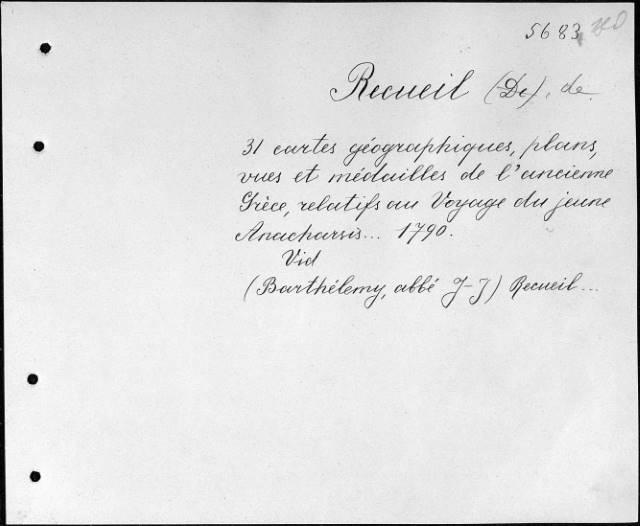 5683
Recueil (De), de
31 cartes géographiques, plans,
vues et médailles de l'ancienne
Grèce, relatifs au Voyage du jeune
Anacharsis... 1790.
Vid
(Barthélemy, abbé J-J) Recueil...